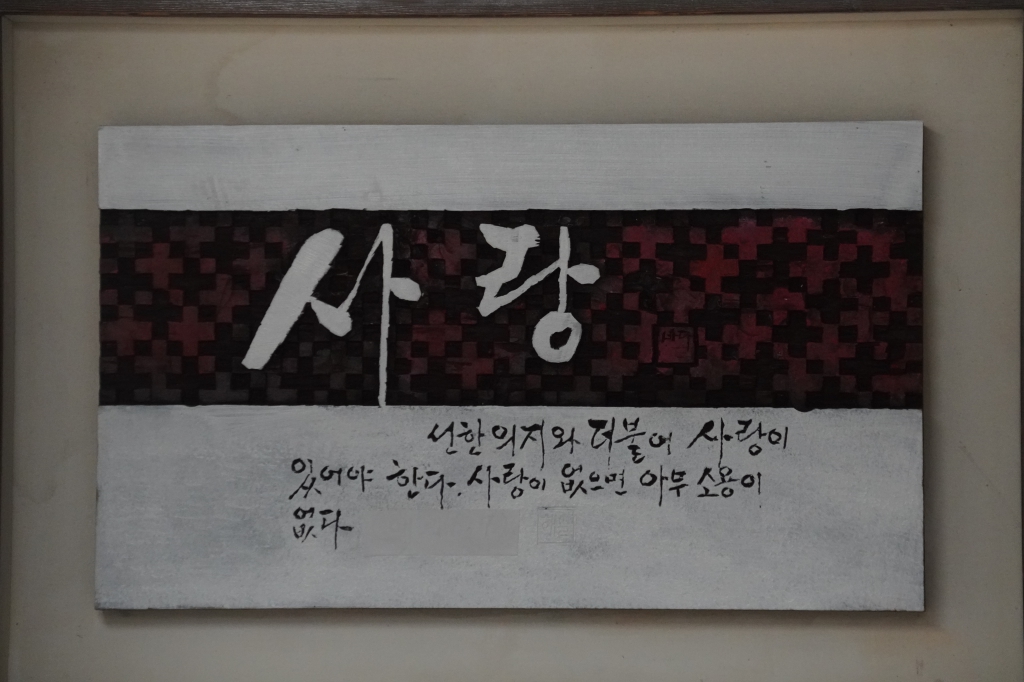 사랑
선한 의지와 더불어 사랑이
있어야 한다. 사랑이 없으면 아무 소용이
없다